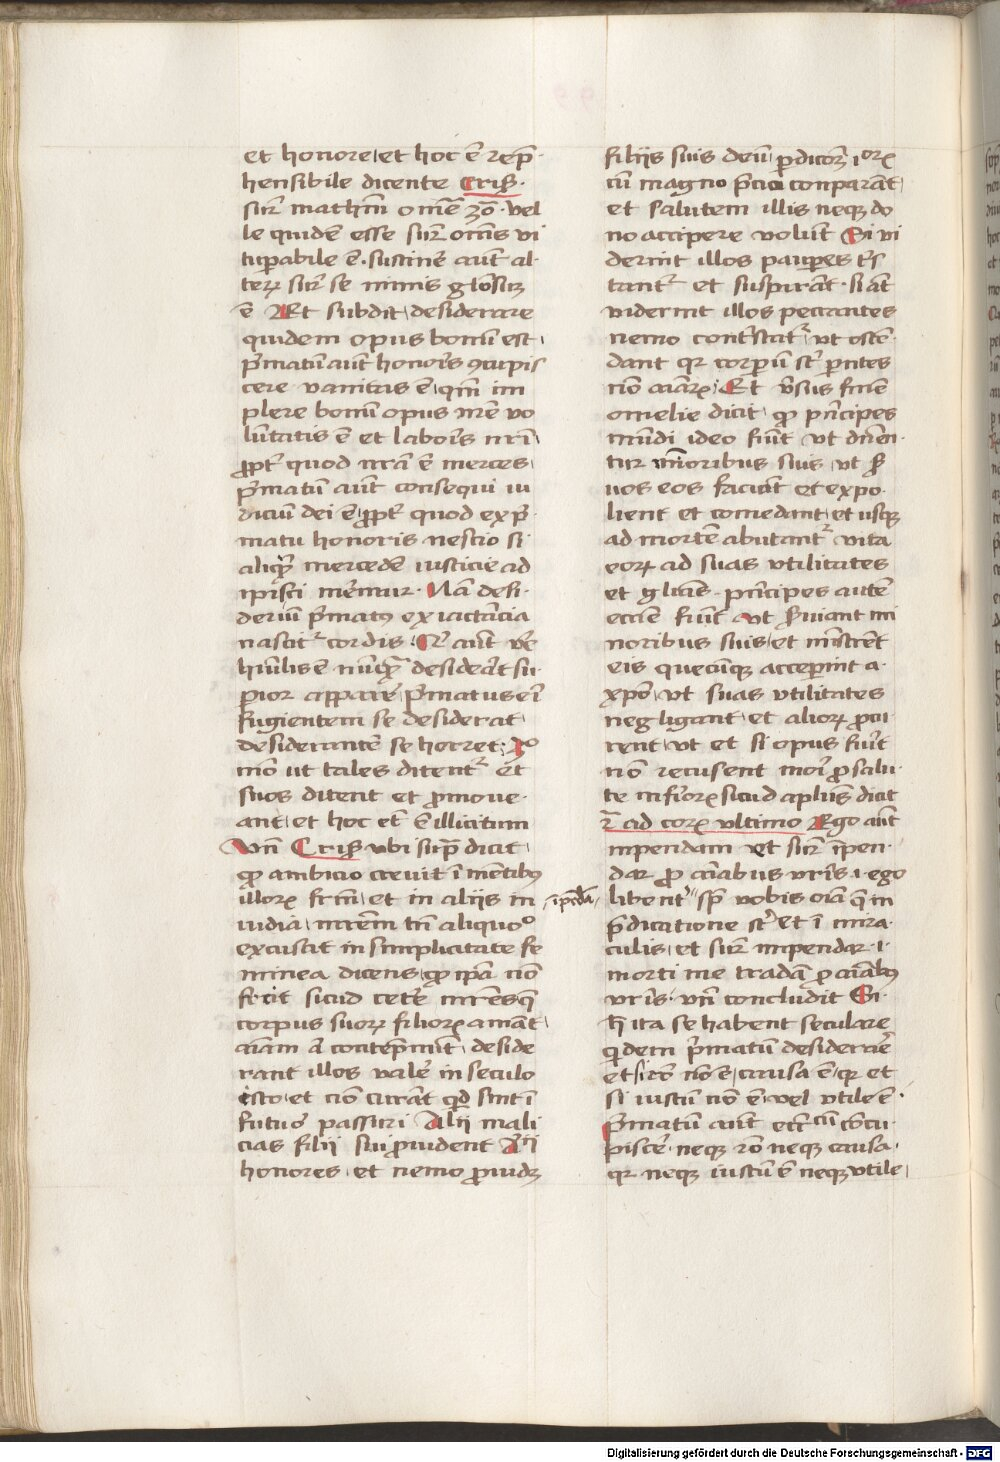 et honore et hoc ē rep̄
hensibile dicente Cris.
sup̄ mathm̄ omeē 20. vel
le quidē esse sup̄ om̄s vi
tup̄abile ē. sustinē aūt al
terꝝ sup̄ se nimis gl̄osum
ē Et subdit desiderare
quidem opus bonū est
p̄matū aūt honor̄s ꝯcupis
cere vanitas ē qm̄ im
plere bonū opus nr̄e vo
lūtatis ē et labor̄s nr̄i
ꝓpt̄ quod nr̄a ē merces
p̄matū aūt consequi iu
diciū dei ē ꝓpt̄ quod ex p̄
matu honoris nescio si
aliqn̄ mercedē iusticie ad
ipisci mer̄mur. Nā desi
deriū p̄matꝰ ex iactācia
nascit̄ cordis. Qr̄ aūt ve͞
hūilis ē nūqꝫ desiderat su
p̄ior apparē p̄matus eī
fugientem se desiderat
desiderantē se horret. Xo
mō ut tales ditent̄ et
suos ditent et ꝓmoue
ant et hoc et̄ ē illicitum
Vn̄ Cris ubi sup̄ dicit
qꝫ ambicio creuit ī mētibꝰ
illorꝝ frm̄ et in aliis in
uidia mr̄em tn̄ aliquoº
excusat in simplicitate fe
minea dicens qꝫ ipā nō
fecit sicud ceterē mr̄es qē
corpus suorꝝ filiorꝝ amāt
aīam āt contēp̄nūt deside
rant illos valē in seculo
isto et nō curāt qd̄ sint ī
futuº passuri Alii mali
cias filii sui ꝓuident Alii
honores et nemo ꝓuidꝫ
filiis suis deū ꝑdicōꝫ iorꝝ
cū magno p̄cio conparāt
et salutem illis neqꝫ do
no accipere volūt Si vi
derint illos paup̄es t̄s
tant̄ et suspirāt. si āt
viderint illos peccantes
nemo cont̄stat̄ vt osten
dant qr̄ corporū st̄ p̄ntes
nō aīarꝝ Et v̄sus finē
omelie dicit qꝫ pn̄cipes
mūdi ideo fiūt vt dn̄en
tur minoribus suis vt s̄
uos eos faciāt et expo
lient et comedant et usqꝫ
ad mortē abutant̄ vita
eorꝝ ad suas vtilitates
et gl̄iās. pn̄cipes autē
ecc̄ie fiūt vt s̄uiant mi
noribus suis et mīstrēt
eis quecūqꝫ accep̄int a
xp̄o vt suas vtilitates
negligant et aliorꝝ ꝓcu
rent vt et si opus fuīt
nō recusent mori ꝓ salu
te inferiorꝝ sicud aplus dicit
2ª ad corꝝ ultimo Ego aūt
inpendam et sup̄ īpen
dar ꝓ aīabus vr̄is .i. ego
ipēdā
libent̄ sp̄ vobis oīa q̄ in
p̄dicatione st̄ et ī mira
culis et sup̄ inpendar .i.
morti me tradā ꝓ aīabꝰ
vr̄is. vn̄ concludit Si
h̄ ita se habent seculare
qͥdem p̄matū desiderare
etsi rō nō ē causa ē qꝫ et
si iustū nō ē vel vtile ē.
p̄matū aūt ecc̄ cū ꝯcu
piscē. neqꝫ rō neqꝫ causa.
qr̄ neqꝫ iustū ē neqꝫ vtile
Digitalisierung gefördert durch die Deutsche Forschungsgemeinschaft - DFG